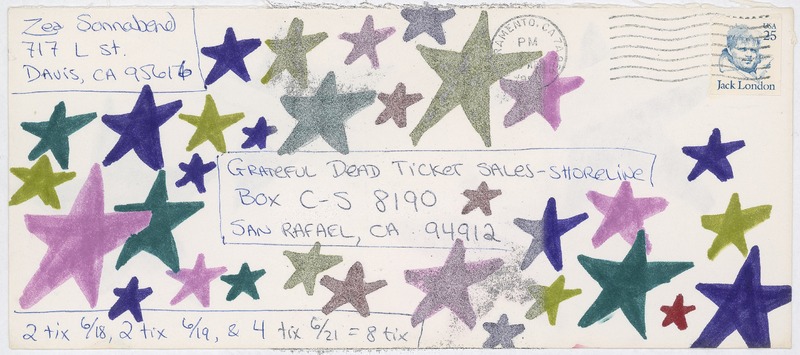 Zea Sonnabend
717 L St.
Davis, CA 95616
PM
USA
25
Jack London
GRATEFUL DEAD TICKET SALES-SHORELINE
BOX C-S 8190
SAN RAFAEL, CA 94912
2 tix 6/18, 2 tix 6/19, & 4 tix 6/21 = 8 tix